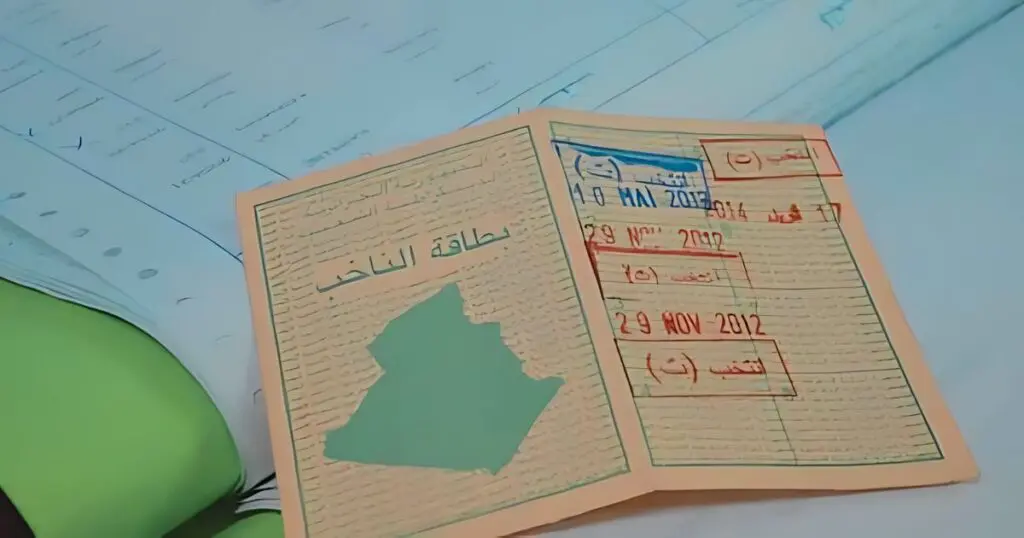 الجمهورية الجزائرية
الديمقراطية الشعبية
بطاقة الناخب
انتخب (ت)
10 MAI 2012
انتخب (ت)
17 2014
29 2012
انتخب (ت)
29 NOV 2012
انتخب (ت)